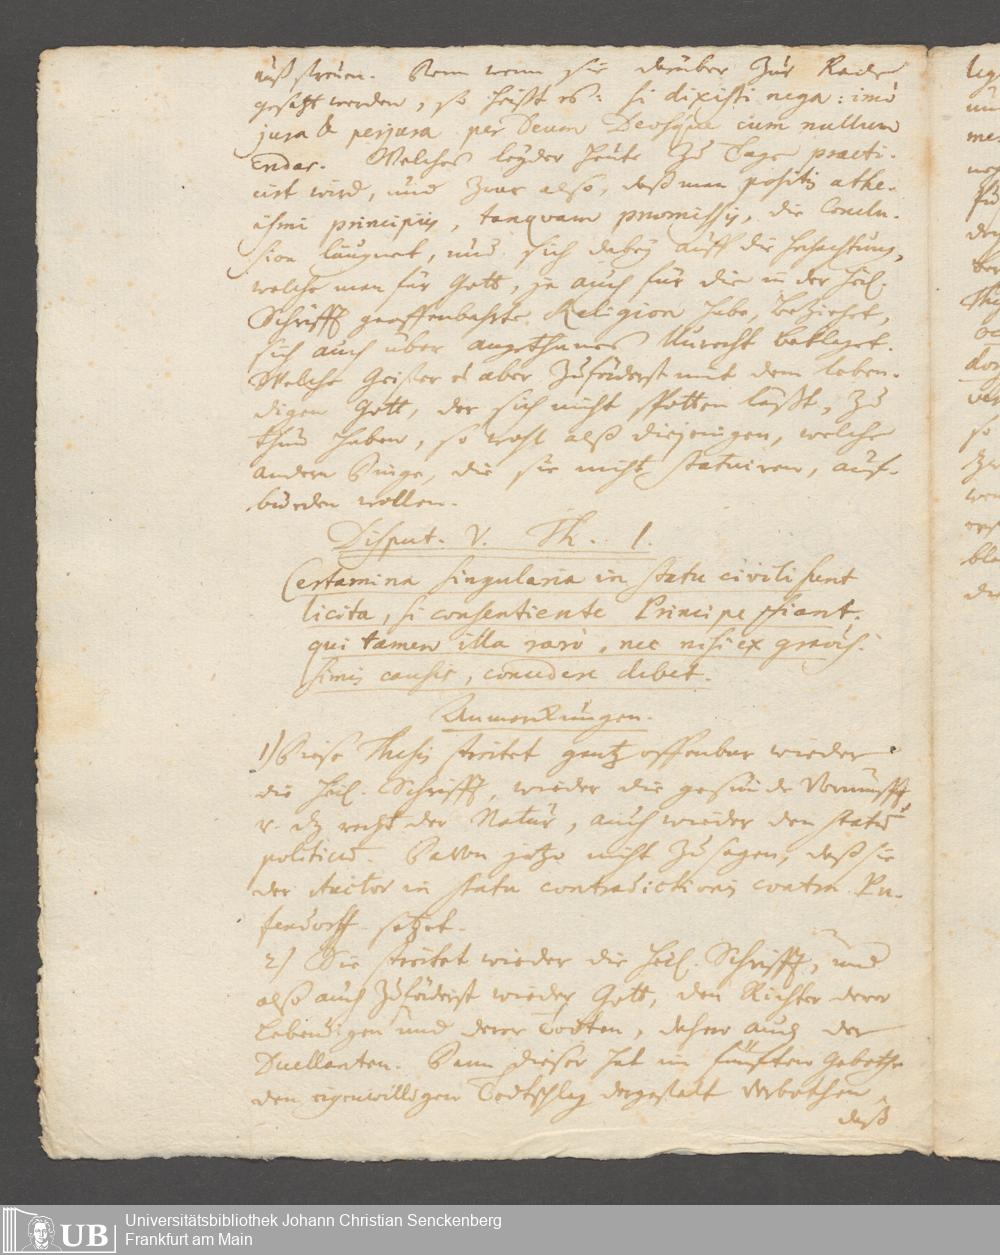 außstreuen. Denn wenn sie darüber zur Rede
gesetzt werden, so heißt es: si dixisti nega: imò
jura & perjura per Deum Deosque cum nullum
credas. Welches leyder heute zu Tage practi-
cirt wird, und zwar also, daß man positis athe-
ismi principiis, tanquam praemissis, die Conclu-
sion läugnet, und sich dabey auff die Hochachtung,
welche man für Gott, ja auch für die in der heil.
Schrifft geoffenbahrte Religion habe, beziehet,
sich auch über angethanes Unrecht beklaget.
Welche Geister es aber zuförderst mit dem leben-
digen Gott, der sich nicht spotten läßt, zu
thun haben, so wohl alß diejenigen, welche
andern Dinge, die sie nicht statuiren, auf-
bürden wollen.
Disput. V. Th. 1.
Certamina singularia in statu civili sunt
licita, si consentiente Principe fiant,
qui tamen illa rarò, nec nisi ex gravis-
simis causis, concedere debet.
Anmerckungen.
1) Diese Thesis streitet gantz offenbar wieder
die Heil. Schrifft, wieder die gesunde Vernunfft
u. dz recht der Natur, auch wieder den statum
politicum. Davon jetzo nicht zu sagen, daß sie
der Auctor in statu contradictionis contra Pu-
fendorff setzet.
2) Sie streitet wieder die Heil. Schrifft, und
alß auch zuförderst wieder Gott, den Richter derer
Lebendigen und derer Todten, daher auch der
Duellanten. Dann dieser hat im fünfften Gebothe
den eigenwilligen Todtschlag dergestalt verbothen,
daß
Universitätsbibliothek Johann Christian Senckenberg
Frankfurt am Main
UB